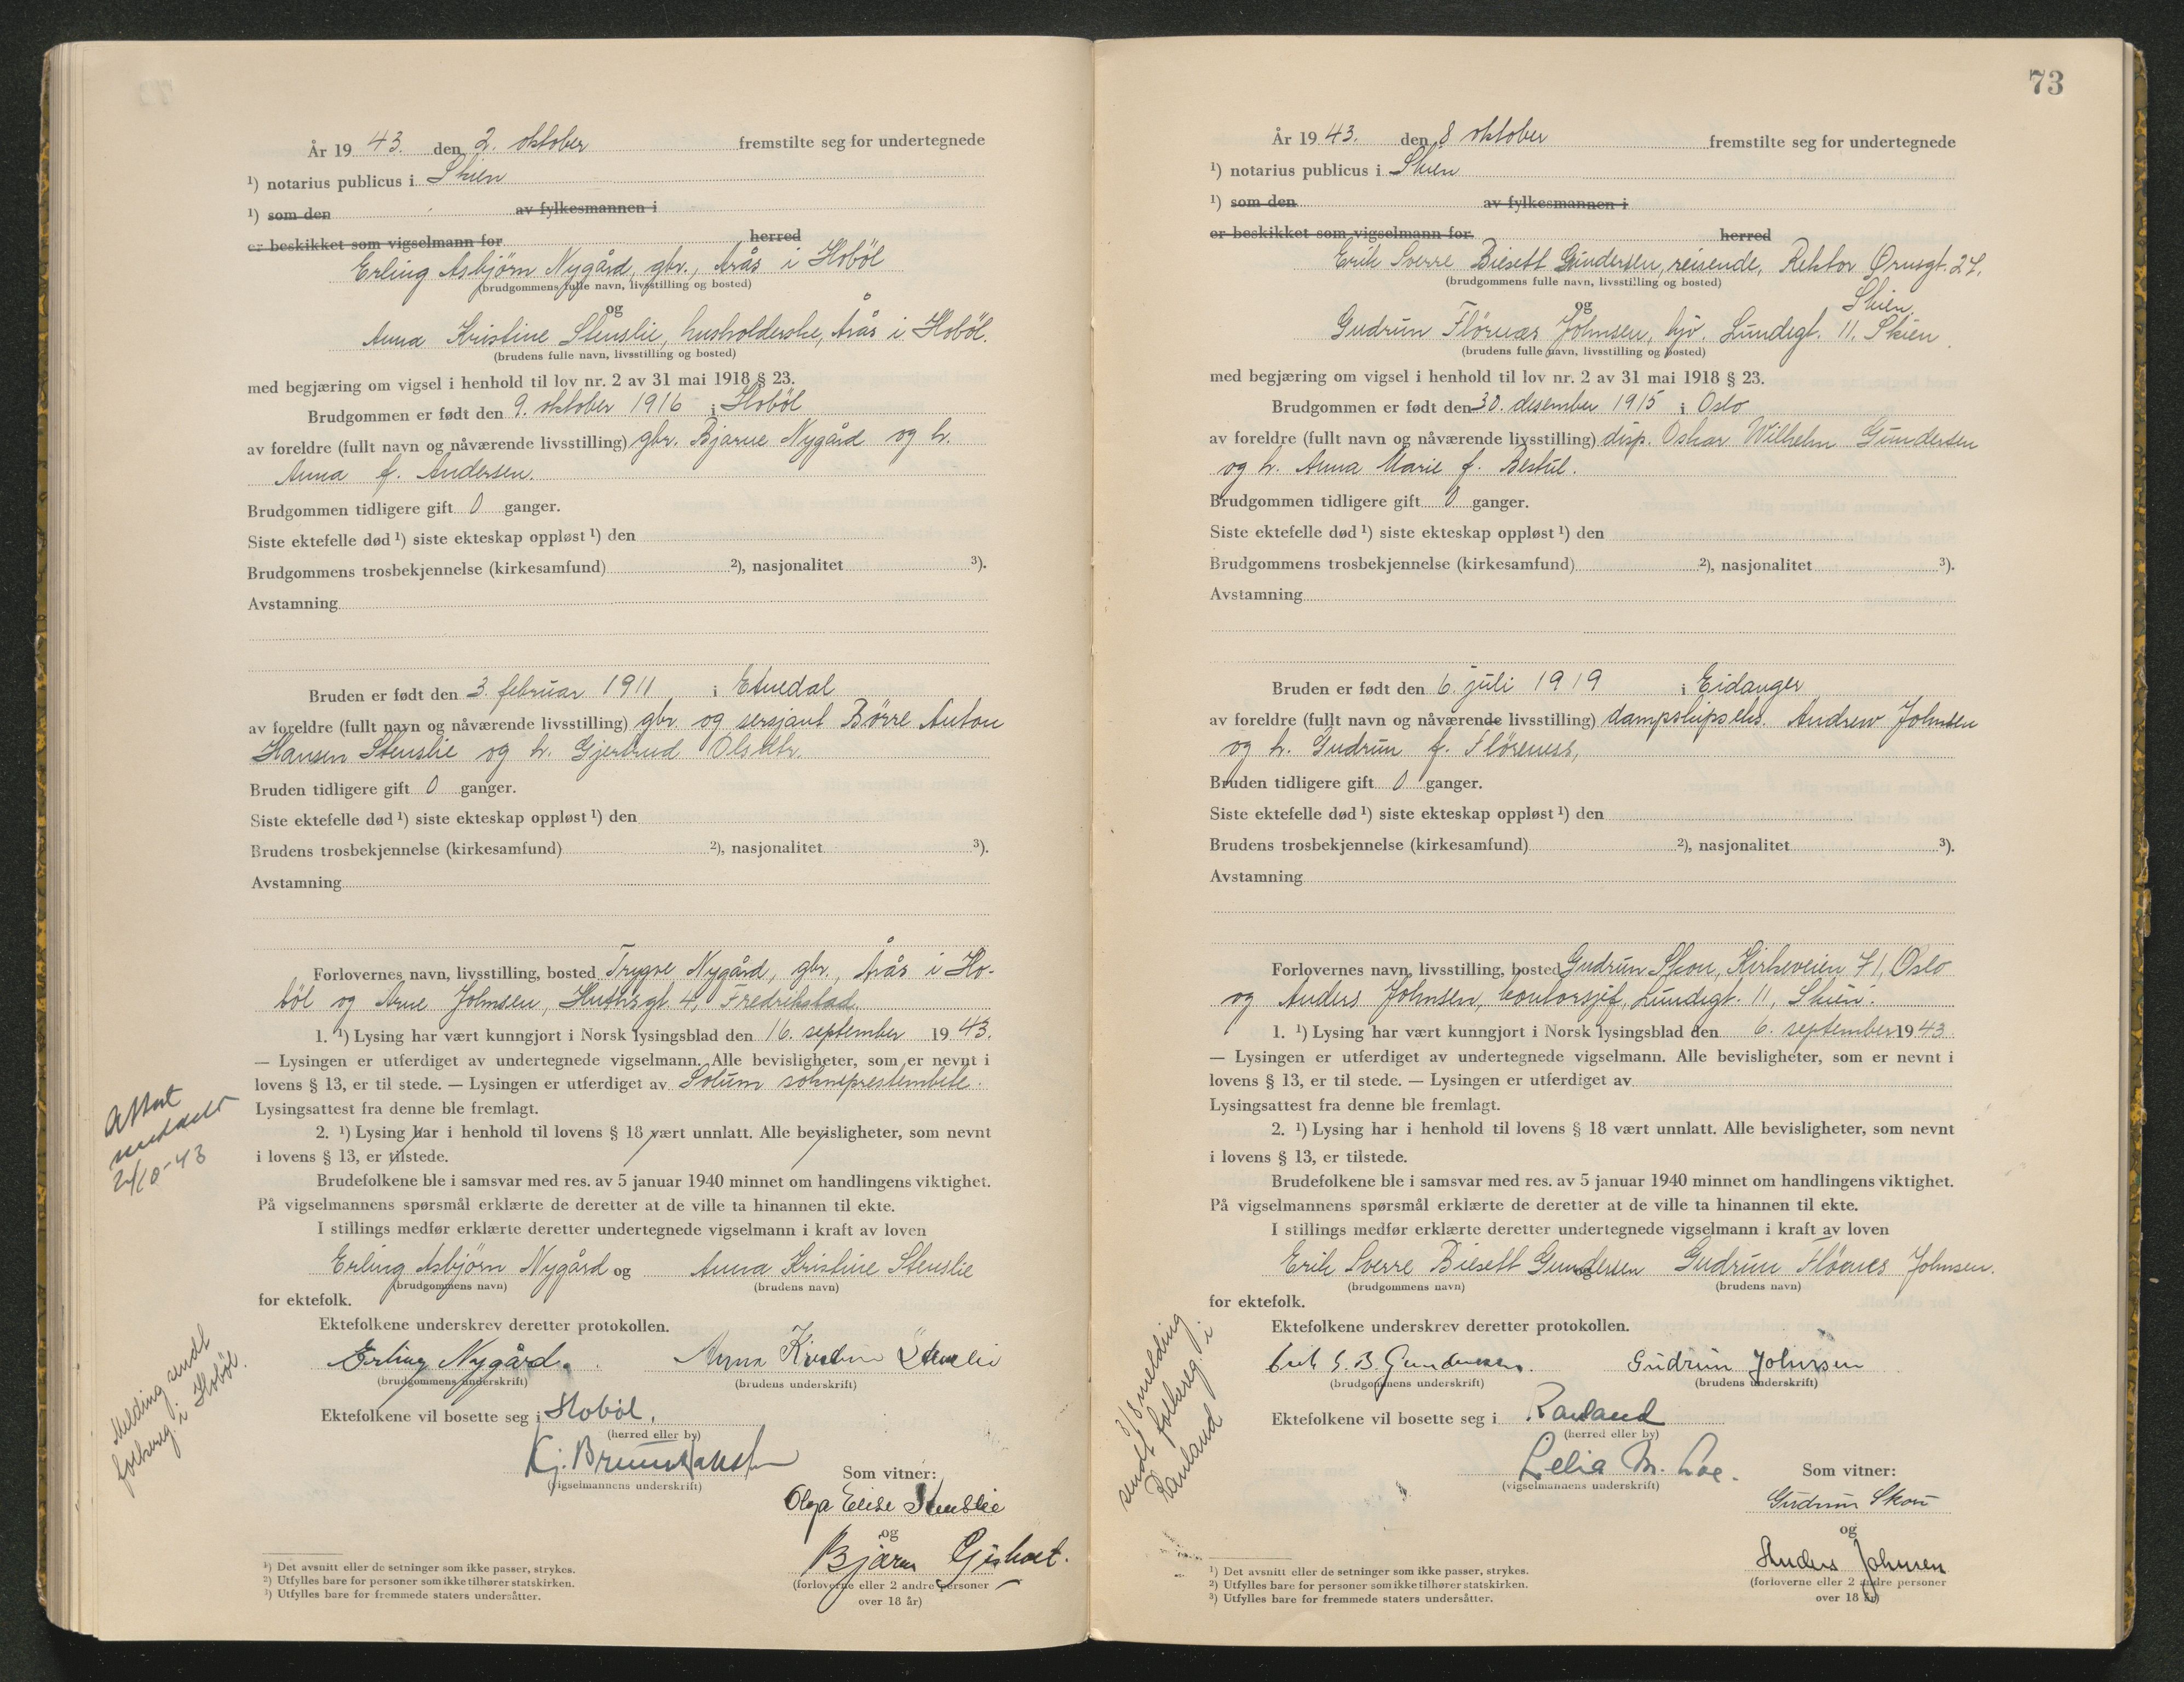 År 19 43. den 2. oktober fremstilte seg for undertegnede
¹) notarius publicus i Skien
¹) som den av fylkesmannen i
er beskikket som vigselmann for herred
Erling Asbjörn Nygård, gbr., Arås i Hoböl
(brudgommens fulle navn, livsstilling og bosted)
og
Anna Kristine Stenslie, husholderske, Arås i Hoböl.
(brudens fulle navn, livsstilling og bosted)
med begjæring om vigsel i henhold til lov nr. 2 av 31 mai 1918 § 23.
Brudgommen er født den 9. oktober 1916 i Hoböl
av foreldre (fullt navn og nåværende livsstilling) gbr. Bjarne Nygård og h.
Anna f. Andersen.
Brudgommen tidligere gift 0 ganger.
Siste ektefelle død ¹) siste ekteskap oppløst ¹) den
Brudgommens trosbekjennelse (kirkesamfund) ²), nasjonalitet ³).
Avstamning
Bruden er født den 3. februar 1911 i Etnedal
av foreldre (fullt navn og nåværende livsstilling) gbr. og sersjant Börre Anton
Hansen Stenslie og h. Gjertrud Olsdtr.
Bruden tidligere gift 0 ganger.
Siste ektefelle død ¹) siste ekteskap oppløst ¹) den
Brudens trosbekjennelse (kirkesamfund) ²), nasjonalitet ³).
Avstamning
Forlovernes navn, livsstilling, bosted Trygve Nygård, gbr., Arås i Ho-
böl og Arne Johnsen, 4, Fredrikstad.
1. ¹) Lysing har vært kunngjort i Norsk lysingsblad den 16. september 19 43.
— Lysingen er utferdiget av undertegnede vigselmann. Alle bevisligheter, som er nevnt i
lovens § 13, er til stede. — Lysingen er utferdiget av Solum sokneprestembete.
Lysingsattest fra denne ble fremlagt.
2. ¹) Lysing har i henhold til lovens § 18 vært unnlatt. Alle bevisligheter, som nevnt
i lovens § 13, er tilstede.
Brudefolkene ble i samsvar med res. av 5 januar 1940 minnet om handlingens viktighet.
På vigselmannens spørsmål erklærte de deretter at de ville ta hinannen til ekte.
I stillings medfør erklærte deretter undertegnede vigselmann i kraft av loven
Erling Asbjörn Nygård og Anna Kristine Stenslie
(brudgommens navn) (brudens navn)
for ektefolk.
Ektefolkene underskrev deretter protokollen.
Erling Nygård. Anna Kristine Stenslie
(brudgommens underskrift) (brudens underskrift)
Ektefolkene vil bosette seg i Hoböl.
(herred eller by)
Kj.
(vigselmannens underskrift)
Som vitner:
Olga Elise Stenslie
og
Bjarne
(forloverne eller 2 andre personer
over 18 år)
¹) Det avsnitt eller de setninger som ikke passer, strykes.
²) Utfylles bare for personer som ikke tilhører statskirken.
³) Utfylles bare for fremmede staters undersåtter.
Attest
meddelt
2/10-43
Melding sendt
folkereg. i Hoböl.
73
År 19 43. den 8 oktober fremstilte seg for undertegnede
¹) notarius publicus i Skien
¹) som den av fylkesmannen i
er beskikket som vigselmann for herred
Erik Sverre Biesett Gundersen, reisende, Rektor Ørnsgt. 27.
(brudgommens fulle navn, livsstilling og bosted)
Skien.
og
Gudrun Flörnes Johnsen, hjv. Lundegt. 11. Skien.
(brudens fulle navn, livsstilling og bosted)
med begjæring om vigsel i henhold til lov nr. 2 av 31 mai 1918 § 23.
Brudgommen er født den 30. desember 1915 i Oslo
av foreldre (fullt navn og nåværende livsstilling) disp. Oskar Wilhelm Gundersen
og h. Anna Marie f. Bestul.
Brudgommen tidligere gift 0 ganger.
Siste ektefelle død ¹) siste ekteskap oppløst ¹) den
Brudgommens trosbekjennelse (kirkesamfund) ²), nasjonalitet ³).
Avstamning
Bruden er født den 6. juli 1919 i Eidanger
av foreldre (fullt navn og nåværende livsstilling) dampskipseks. Andrew Johnsen
og h. Gudrun f. Flörenes,
Bruden tidligere gift 0 ganger.
Siste ektefelle død ¹) siste ekteskap oppløst ¹) den
Brudens trosbekjennelse (kirkesamfund) ²), nasjonalitet ³).
Avstamning
Forlovernes navn, livsstilling, bosted Gudrun Skou, Kirkeveien 71, Oslo
og Anders Johnsen, kontorsjef, Lundegt. 11, Skien.
1. ¹) Lysing har vært kunngjort i Norsk lysingsblad den 6. september 19 43.
— Lysingen er utferdiget av undertegnede vigselmann. Alle bevisligheter, som er nevnt i
lovens § 13, er til stede. — Lysingen er utferdiget av
Lysingsattest fra denne ble fremlagt.
2. ¹) Lysing har i henhold til lovens § 18 vært unnlatt. Alle bevisligheter, som nevnt
i lovens § 13, er tilstede.
Brudefolkene ble i samsvar med res. av 5 januar 1940 minnet om handlingens viktighet.
På vigselmannens spørsmål erklærte de deretter at de ville ta hinannen til ekte.
I stillings medfør erklærte deretter undertegnede vigselmann i kraft av loven
Erik Sverre Biesett Gundersen og Gudrun Flörnes Johnsen.
(brudgommens navn) (brudens navn)
for ektefolk.
Ektefolkene underskrev deretter protokollen.
Erik S. B. Gundersen. Gudrun Johnsen
(brudgommens underskrift) (brudens underskrift)
Ektefolkene vil bosette seg i Rauland
(herred eller by)
Lelia M. Loe.
(vigselmannens underskrift)
Som vitner:
Gudrun Skou
og
Anders Johnsen
(forloverne eller 2 andre personer
over 18 år)
¹) Det avsnitt eller de setninger som ikke passer, strykes.
²) Utfylles bare for personer som ikke tilhører statskirken.
³) Utfylles bare for fremmede staters undersåtter.
melding
sendt folkereg. i
Rauland